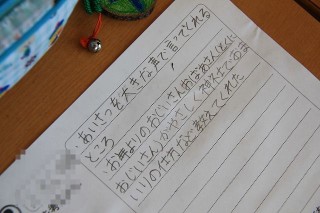 ・あいさつを大きな声で言ってくれる
ところ
・お年よりのおじいさんおばあさん(とくに
おじいさん)がやさしく神社でおま
いりの仕方など教えてくれた